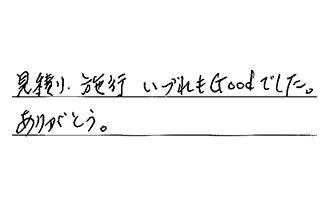 見積り、施行 いづれもGoodでした。
ありがとう。